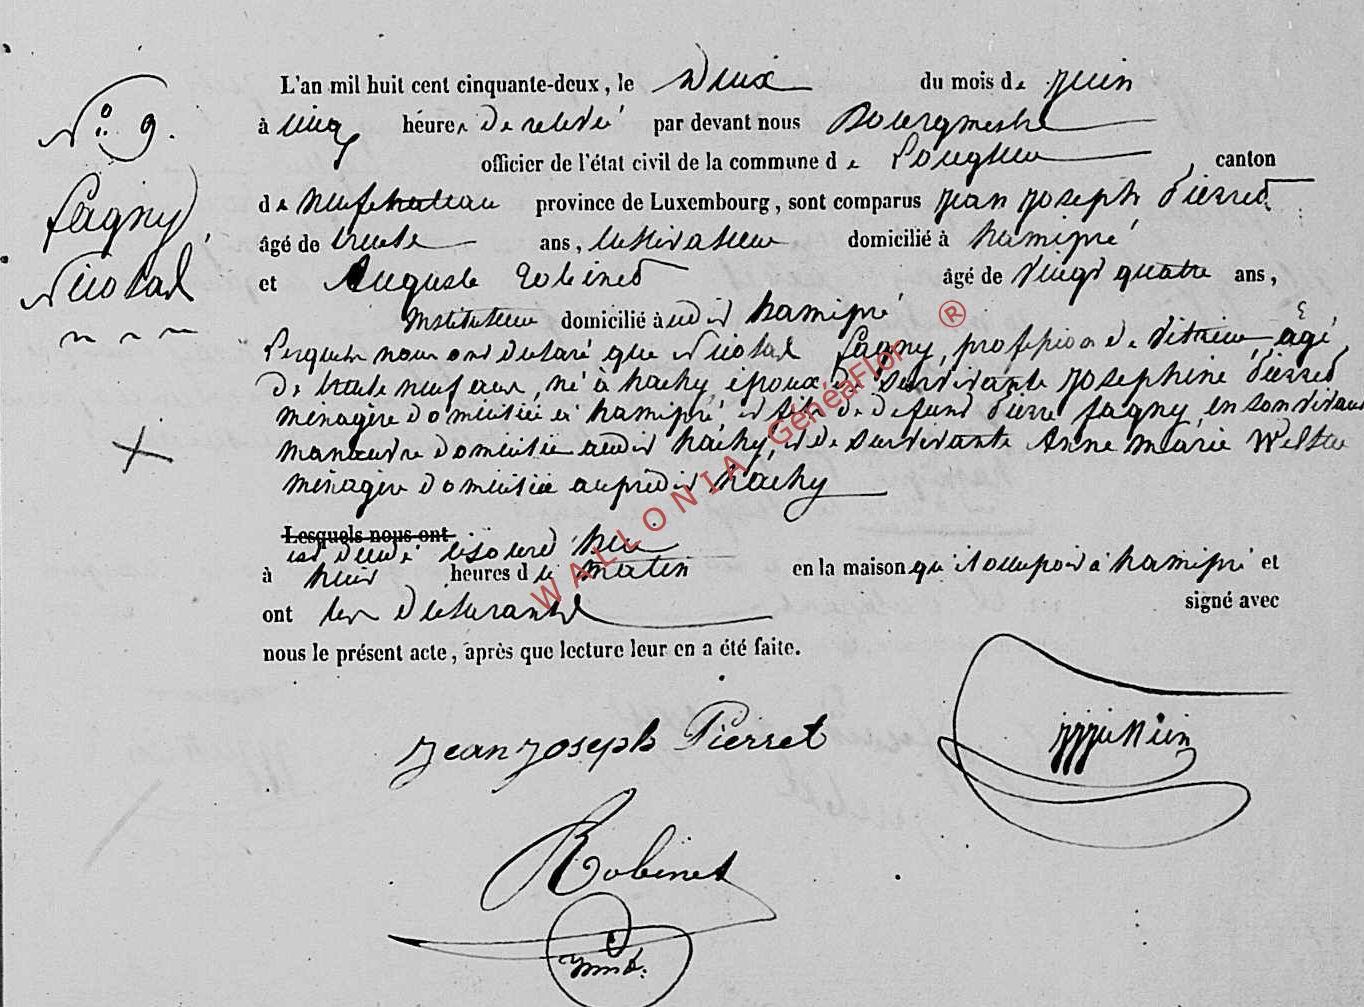 L'an mil huit cent cinquante-deux, le deux du mois de juin
N° 9.
à cinq heures de relevé par devant nous Bourgmestre
officier de l'état civil de la commune de Longlier, canton
Lagny
de neufchateau province de Luxembourg, sont comparus jean joseph Pierret
âgé de trente ans, cultivateur domicilié à hamipré
Nicolas
et Auguste Robinet âgé de vingt quatre ans,
Instituteur domicilié à audit hamipré
Lesquels nous ont déclaré que Nicolas Lagny, profession de vitrier, agé
de trente neuf ans, né à hachy, époux de survivante josephine Pierret
ménagère domiciliée à hamipré, et fils de defunt Pierre Lagny, en son vivant
manœuvre domicilié audit hachy, et de survivante Anne marie Welter
ménagère domiciliée au prédit hachy
Lesquels nous ont
est décédé hier
à huit heures du matin en la maison qu'il occupoit à hamipré et
ont les déclarants signé avec
nous le présent acte, après que lecture leur en a été faite.
jean joseph Pierret
Robinet
WALLONIA GénéaFlor ®